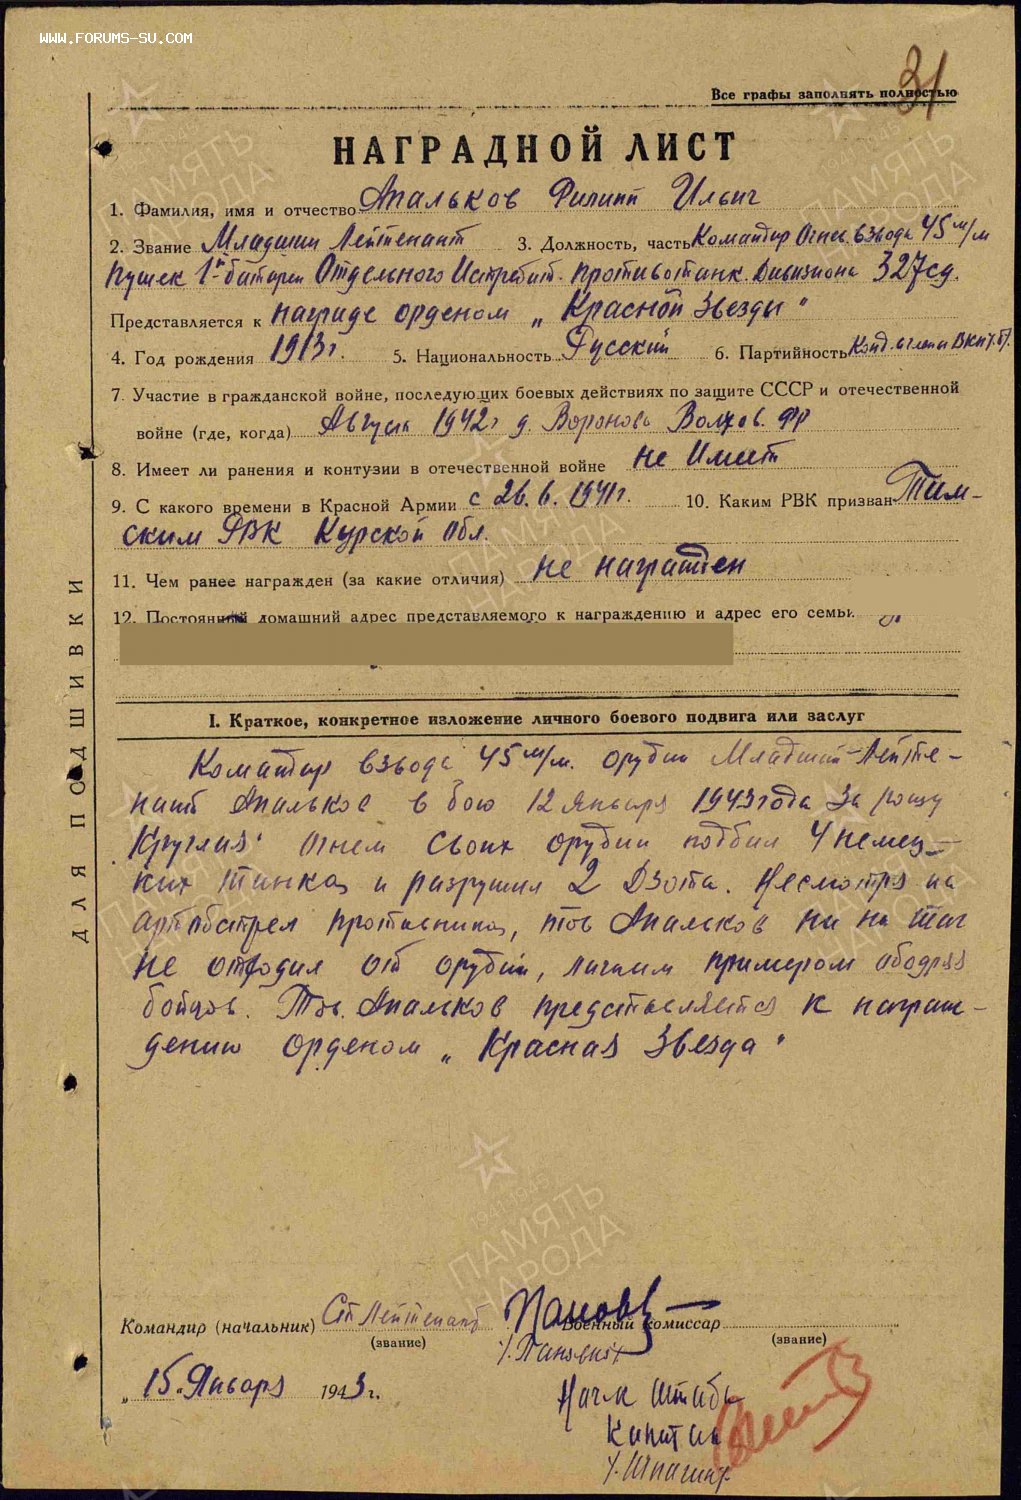 WWW.FORUMS-SU.COM
31
Все графы заполнять полностью
НАГРАДНОЙ ЛИСТ
1. Фамилия, имя и отчество Апальков Филипп Ильич
2. Звание Младший Лейтенант 3. Должность, часть Командир Огнев. взвода 45 м/м
пушек 1й батареи Отдельного Истребит. противотанк. Дивизиона 327 сд.
Представляется к награде орденом „Красной Звезды"
4. Год рождения 1913 г. 5. Национальность Русский 6. Партийность Канд. в члены ВКП(б).
7. Участие в гражданской войне, последующих боевых действиях по защите СССР и отечественной
войне (где, когда) Август 1942 г д. Вороново Волхов. фр
8. Имеет ли ранения и контузии в отечественной войне не Имеет
9. С какого времени в Красной Армии с 26.6.1941 г. 10. Каким РВК призван Тим-
ским РВК Курской Обл.
11. Чем ранее награжден (за какие отличия) не награжден
12. Постоянный домашний адрес представляемого к награждению и адрес его семьи
ДЛЯ ПОДШИВКИ
I. Краткое, конкретное изложение личного боевого подвига или заслуг
Командир взвода 45 м/м. орудий Младший Лейте-
нант Апальков в бою 12 Января 1943 года за рощу
„Круглая" огнем своих орудий подбил 4 немец-
ких танка и разрушил 2 Дзота. Несмотря на
артобстрел противника, тов Апальков ни на шаг
не отходил от орудий, личным примером ободряя
бойцов. Тов. Апальков представляется к награж-
дению орденом „Красная Звезда"
Командир (начальник) Ст Лейтенант Военный комиссар
(звание) (звание)
„15" Января 1943 г.
Нач-к Штаба
Капитан
ПАМЯТЬ НАРОДА
1941-1945